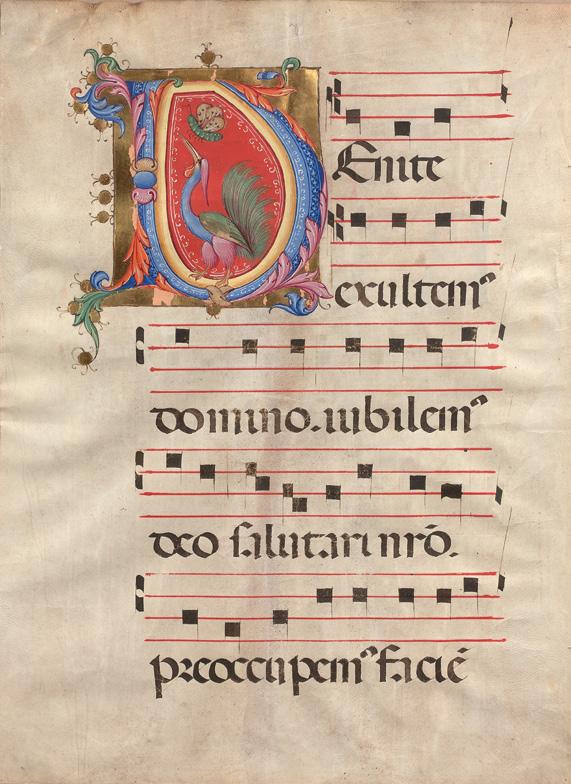 VEnite
exultemꝰ
domino. iubilemꝰ
deo salutari nrō.
preoccupemꝰ faciē